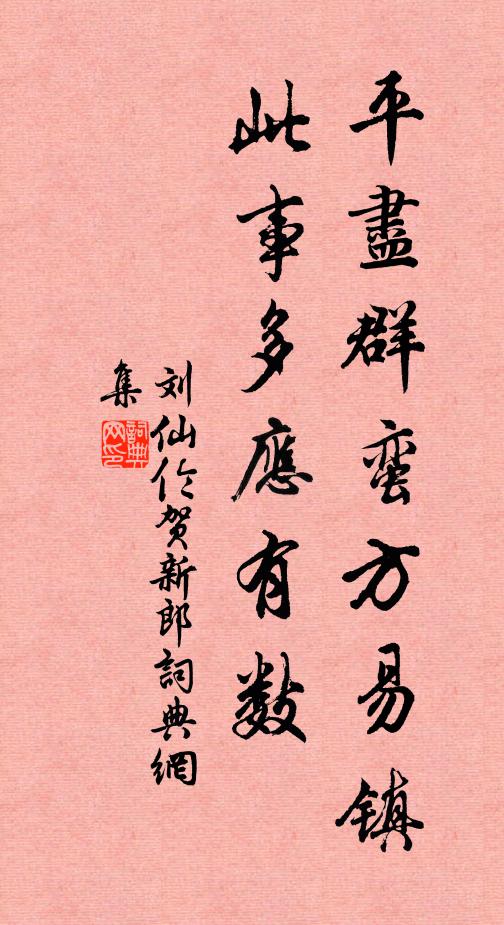 平盡群蛮方易镇
此事多應有数
刘仙伦贺新郎詞典網
集
詞典网印